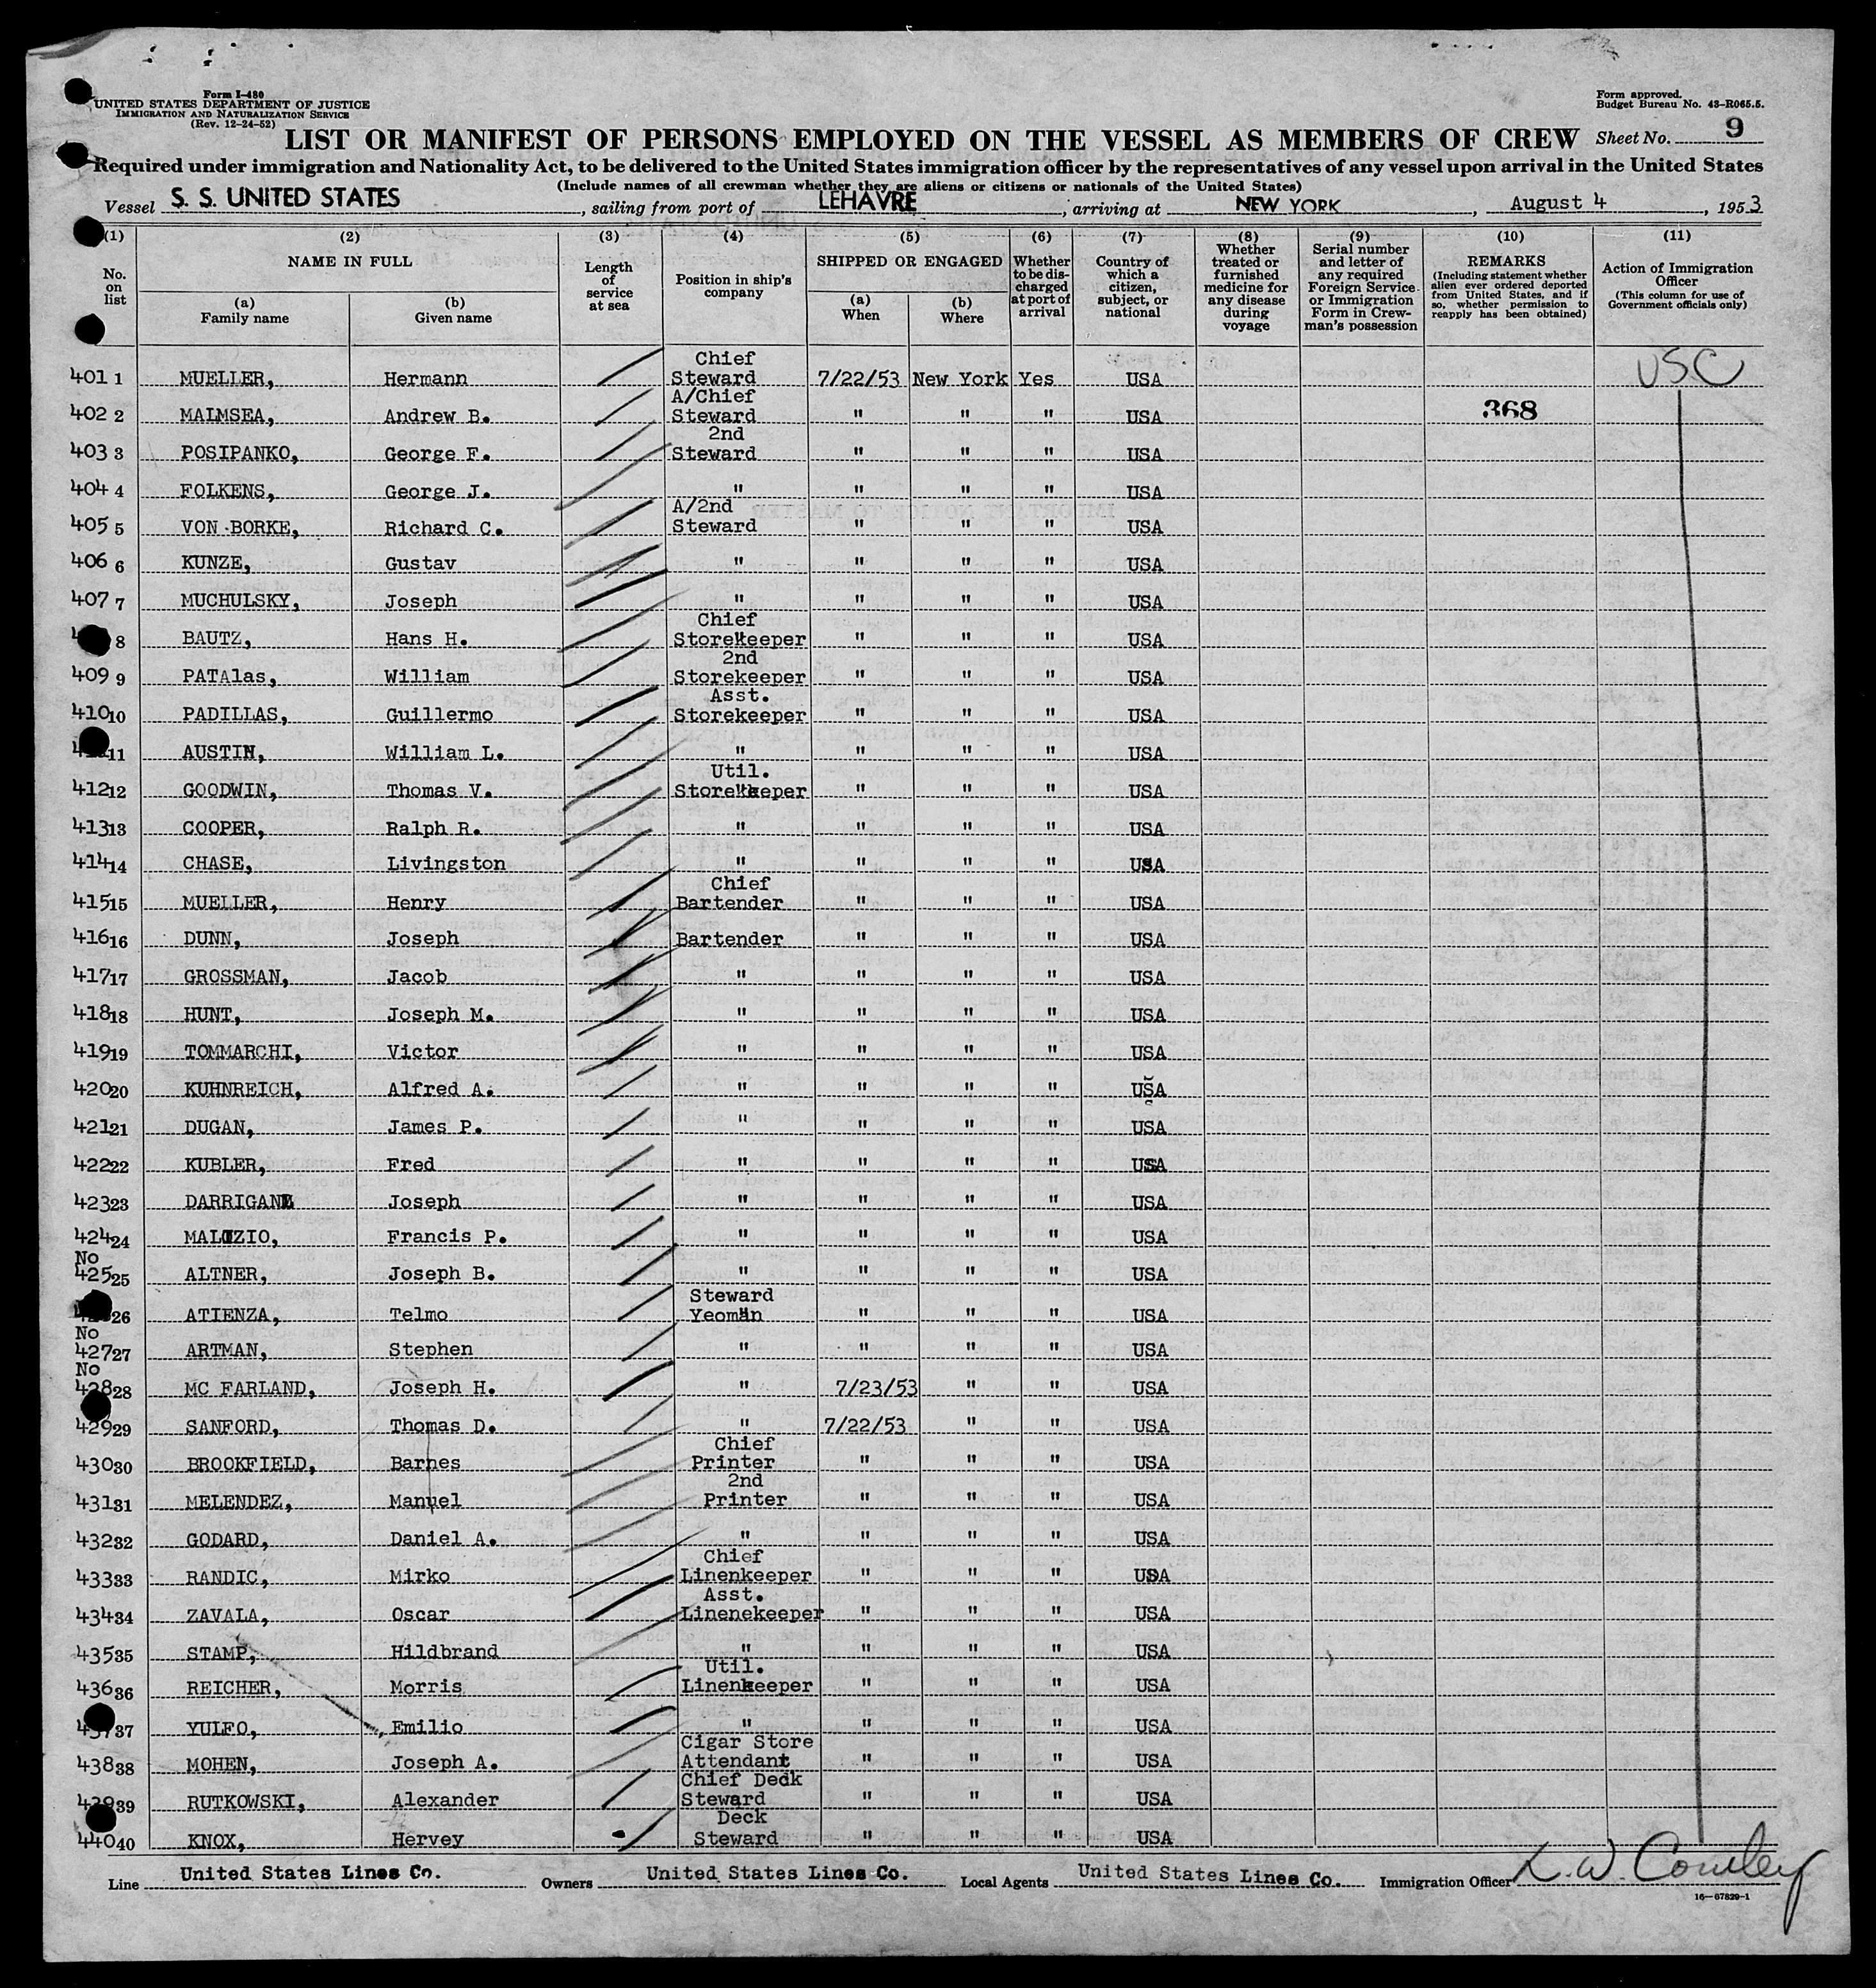 Form I-480
UNITED STATES DEPARTMENT OF JUSTICE
IMMIGRATION AND NATURALIZATION SERVICE
(Rev. 12-24-52)
Form approved.
Budget Bureau No. 43-R065.5.
LIST OR MANIFEST OF PERSONS EMPLOYED ON THE VESSEL AS MEMBERS OF CREW
Sheet No. 9
Required under immigration and Nationality Act, to be delivered to the United States immigration officer by the representatives of any vessel upon arrival in the United States
(Include names of all crewman whether they are aliens or citizens or nationals of the United States)
Vessel S. S. UNITED STATES, sailing from port of LEHAVRE, arriving at NEW YORK, August 4, 1953
(1) (2) (3) (4) (5) (6) (7) (8) (9) (10) (11)
No. on list
NAME IN FULL
(a) Family name
(b) Given name
Length of service at sea
Position in ship's company
SHIPPED OR ENGAGED
(a) When
(b) Where
Whether to be discharged at port of arrival
Country of which a citizen, subject, or national
Whether treated or furnished medicine for any disease during voyage
Serial number and letter of any required Foreign Service or Immigration Form in Crewman's possession
REMARKS
(Including statement whether alien ever ordered deported from United States, and if so, whether permission to reapply has been obtained)
Action of Immigration Officer
(This column for use of Government officials only)
401 1 MUELLER, Hermann Chief Steward 7/22/53 New York Yes USA USC
402 2 MALMSEA, Andrew B. A/Chief Steward " " " USA 368
403 3 POSIPANKO, George F. 2nd Steward " " " USA
404 4 FOLKENS, George J. " " " " USA
405 5 VON BORKE, Richard C. A/2nd Steward " " " USA
406 6 KUNZE, Gustav " " " " USA
407 7 MUCHULSKY, Joseph " " " " USA
8 BAUTZ, Hans H. Chief Storekeeper " " " USA
409 9 PATAlas, William 2nd Storekeeper " " " USA
410 10 PADILLAS, Guillermo Asst. Storekeeper " " " USA
11 AUSTIN, William L. " " " " USA
412 12 GOODWIN, Thomas V. Util. Storekeeper " " " USA
413 13 COOPER, Ralph R. " " " " USA
414 14 CHASE, Livingston " " " " USA
415 15 MUELLER, Henry Chief Bartender " " " USA
416 16 DUNN, Joseph Bartender " " " USA
417 17 GROSSMAN, Jacob " " " " USA
418 18 HUNT, Joseph M. " " " " USA
419 19 TOMMARCHI, Victor " " " " USA
420 20 KUHNREICH, Alfred A. " " " " USA
421 21 DUGAN, James P. " " " " USA
422 22 KUBLER, Fred " " " " USA
423 23 Joseph " " " " USA
424 24 Francis P. " " " " USA
No 425 25 ALTNER, Joseph B. " " " " USA
26 ATIENZA, Telmo Steward Yeoman " " " USA
No 427 27 ARTMAN, Stephen " " " " USA
No 428 28 MC FARLAND, Joseph H. " 7/23/53 " " USA
429 29 SANFORD, Thomas D. " 7/22/53 " " USA
430 30 BROOKFIELD, Barnes Chief Printer " " " USA
431 31 MELENDEZ, Manuel 2nd Printer " " " USA
432 32 GODARD, Daniel A. " " " " USA
433 33 RANDIC, Mirko Chief Linenkeeper " " " USA
434 34 ZAVALA, Oscar Asst. Linenekeeper " " " USA
435 35 STAMP, Hildbrand " " " " USA
436 36 REICHER, Morris Util. Linenkeeper " " " USA
437 37 YULFO, Emilio " " " " USA
438 38 MOHEN, Joseph A. Cigar Store Attendant " " " USA
439 39 RUTKOWSKI, Alexander Chief Deck Steward " " " USA
440 40 KNOX, Hervey Deck Steward " " " USA
Line United States Lines Co. Owners United States Lines Co. Local Agents United States Lines Co. Immigration Officer
16-67829-1